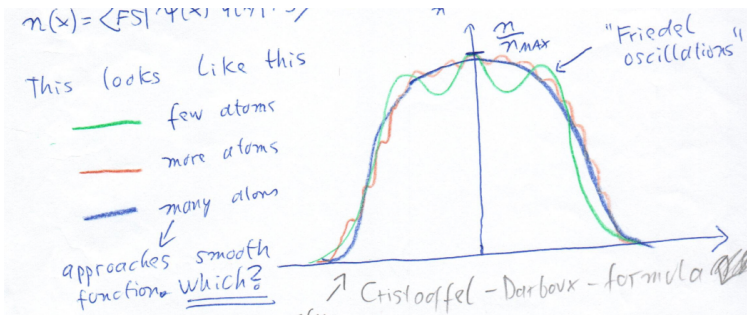 n(x) = <FS|
This looks like this
few atoms
more atoms
many atoms
approaches smooth
function. Which?
n
n MAX
"Friedel
oscillations"
Cristooffel-Darboux-formula